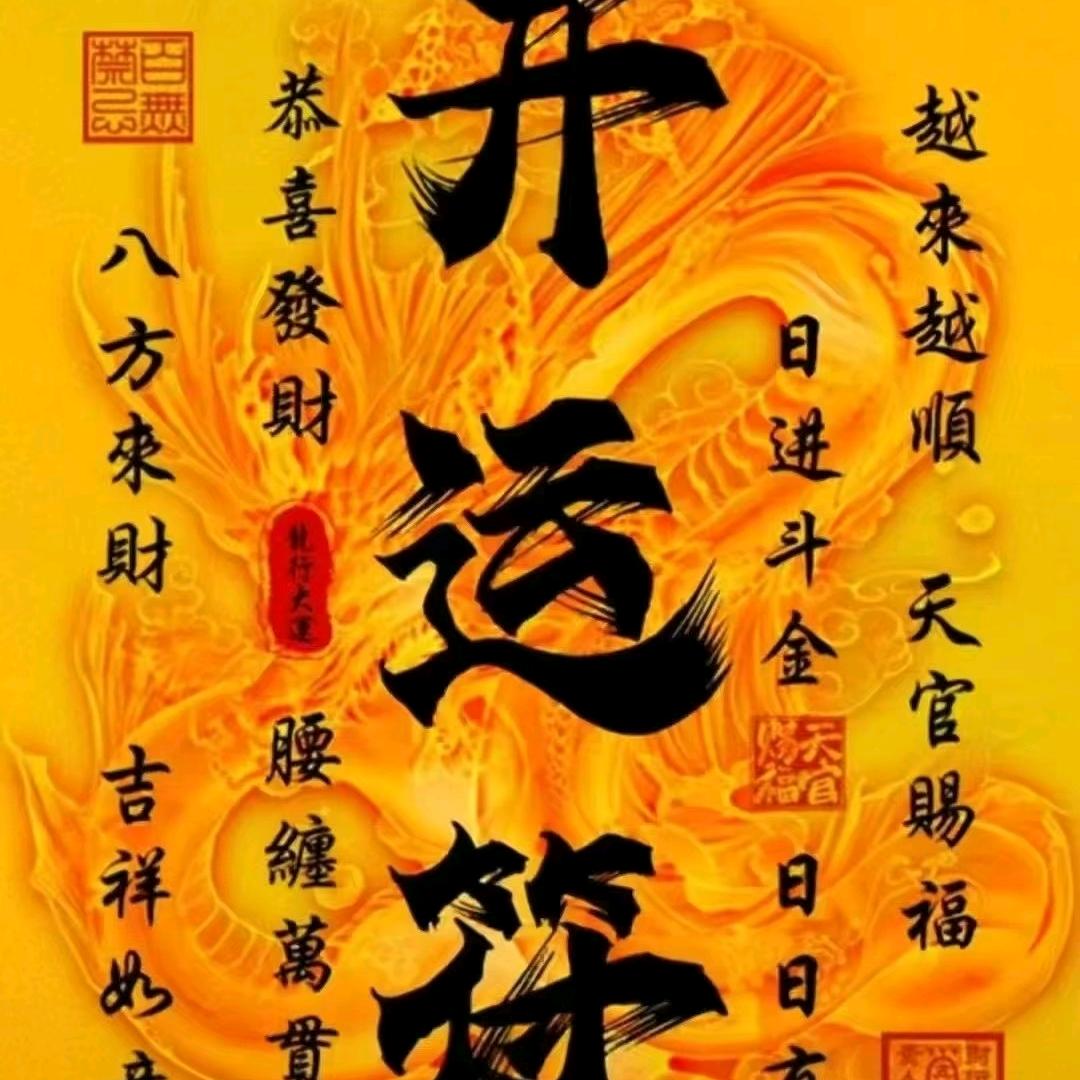 越來越順 天官賜福
日进斗金
天官賜福
日日
开运符
恭喜發財
龍行大運
腰纏萬貫
八方來財 吉祥如
百無禁忌